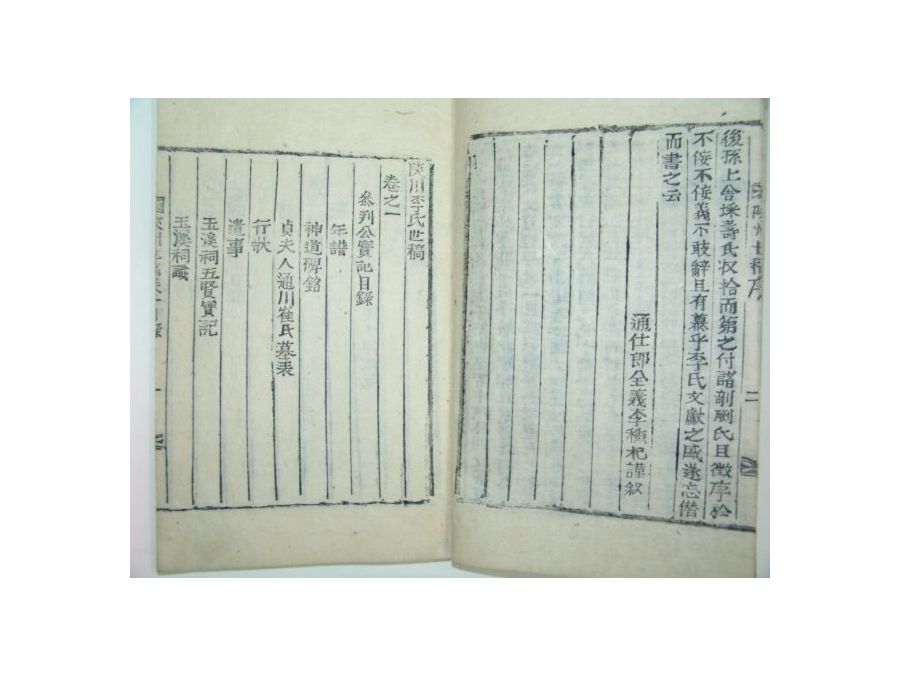 後孫上舍埰壽氏收拾而第之付諸剞劂氏且徵序於
不佞不佞義不敢辭且有慕乎李氏文獻之盛遂忘僭
而書之云
通仕郎全義李種杞謹叙
陜川李氏世稿
卷之一
叅判公實記目錄
年譜
神道碑銘
貞夫人通川崔氏墓表
行狀
遺事
玉溪祠五賢實記
玉溪祠識